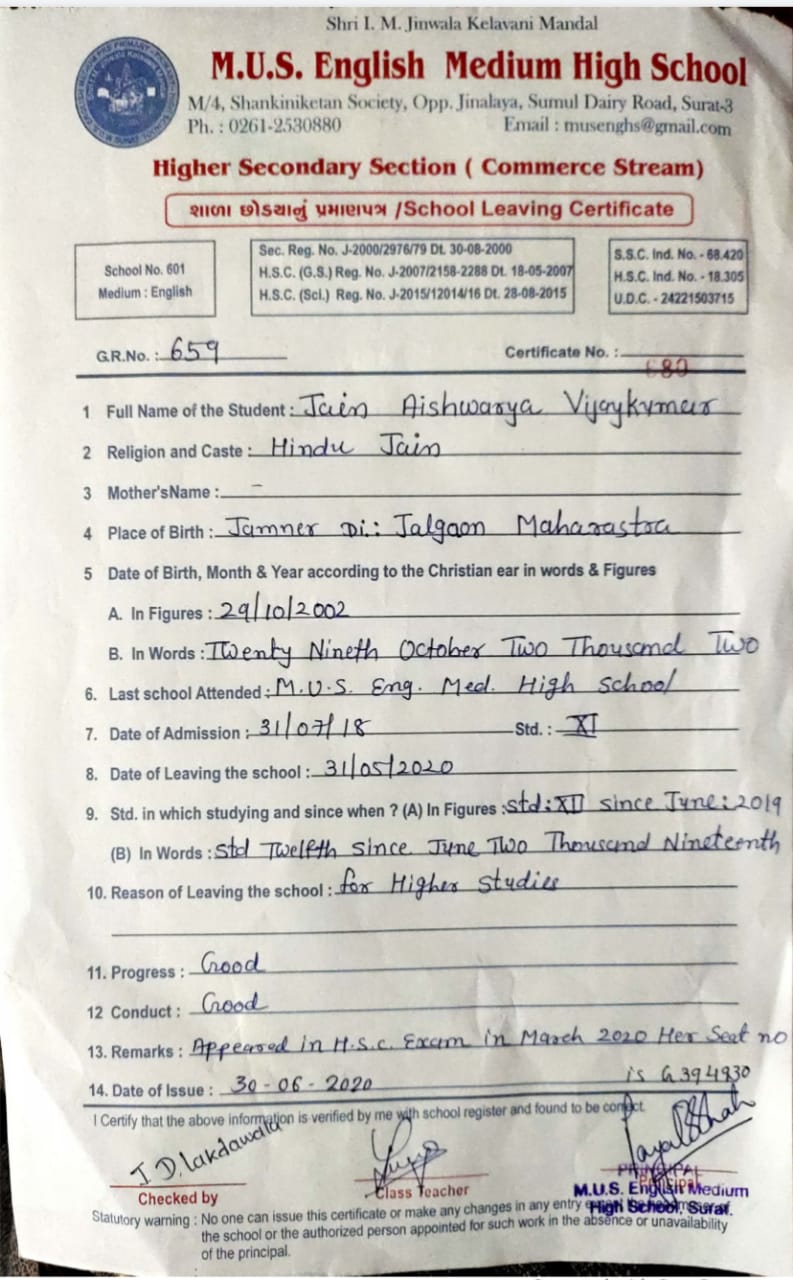 Shri I. M. Jinwala Kelavani Mandal
M.U.S. English Medium High School
M/4, Shankiniketan Society, Opp. Jinalaya, Sumul Dairy Road, Surat-3
Ph. : 0261-2530880 Email : musenghs@gmail.com
Higher Secondary Section ( Commerce Stream)
શાળા છોડયાનું પ્રમાણપત્ર /School Leaving Certificate
School No. 601
Medium : English
Sec. Reg. No. J-2000/2976/79 Dt. 30-08-2000
H.S.C. (G.S.) Reg. No. J-2007/2158-2288 Dt. 18-05-2007
H.S.C. (Sci.) Reg. No. J-2015/12014/16 Dt. 28-08-2015
S.S.C. Ind. No. - 68.420
H.S.C. Ind. No. - 18.305
U.D.C. - 24221503715
G.R.No. : 659 Certificate No. : 680
1 Full Name of the Student : Jain Aishwarya Vijaykumar
2 Religion and Caste : Hindu Jain
3 Mother'sName : -
4 Place of Birth : Jamner Di.: Jalgaon Maharastra
5 Date of Birth, Month & Year according to the Christian ear in words & Figures
A. In Figures : 29/10/2002
B. In Words : Twenty Nineth October Two Thousand Two
6. Last school Attended : M.U.S. Eng. Med. High School
7. Date of Admission : 31/07/18 Std. : XI
8. Date of Leaving the school : 31/05/2020
9. Std. in which studying and since when ? (A) In Figures : Std: XII since June: 2019
(B) In Words : Std Twelfth since June Two Thousand Nineteenth
10. Reason of Leaving the school : for Higher Studies
11. Progress : Good
12 Conduct : Good
13. Remarks : Appeared in H.S.C. Exam in March 2020 Her Seat no
is G394930
14. Date of Issue : 30-06-2020
I Certify that the above information is verified by me with school register and found to be correct.
J. D. Lakdawala
Checked by
Class Teacher
PRINCIPAL
M.U.S. English Medium
High School, Surat.
Statutory warning : No one can issue this certificate or make any changes in any entry
the school or the authorized person appointed for such work in the absence or unavailability
of the principal.